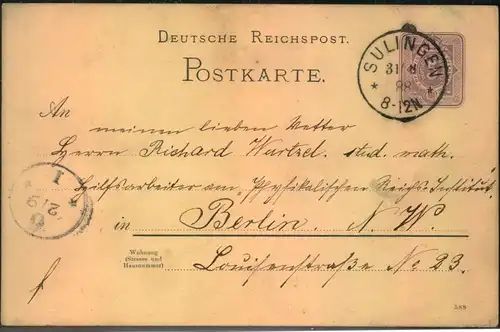 DEUTSCHE REICHSPOST.
POSTKARTE.
SULINGEN
31/8
88
* *
8-12N
An
meinen lieben Vetter
Herrn Richard Wurtzel. stud. math.
Hilfsarbeiter am Physikalischen Reichs Institut
in Berlin. N. W.
Wohnung
(Strasse und
Hausnummer)
Louisenstraße No 23.
1
2/9
588